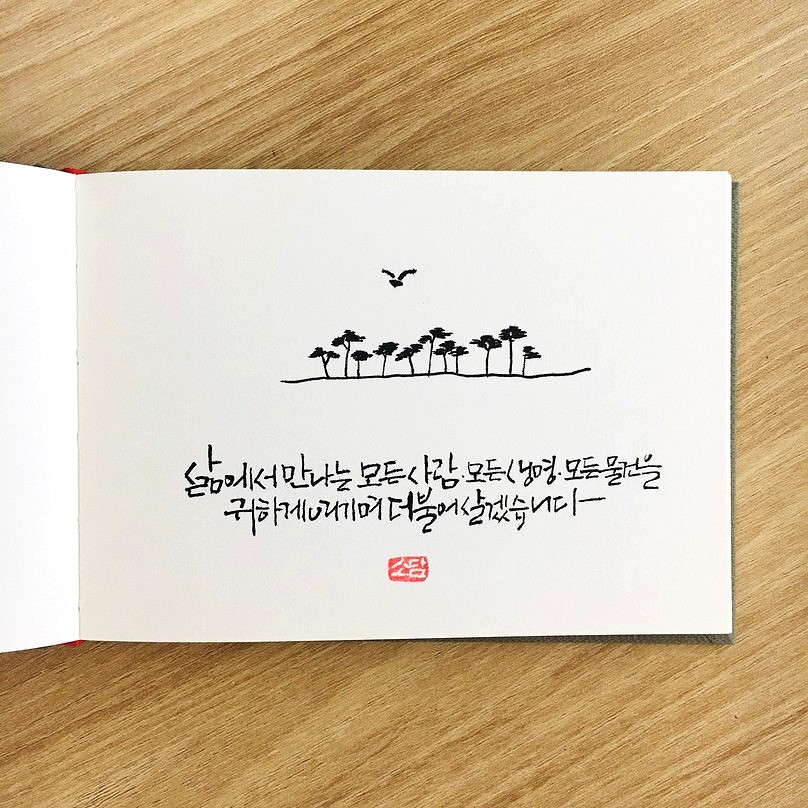 삶에서 만나는 모든 사람·모든 생명·모든 물건을
귀하게 여기며 더불어 살겠습니다
소담